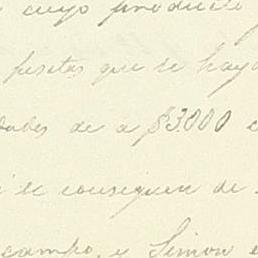 cuyo producto
pesetas que se haya
dades de a $3.000
se consiguen de
campo, y Simon